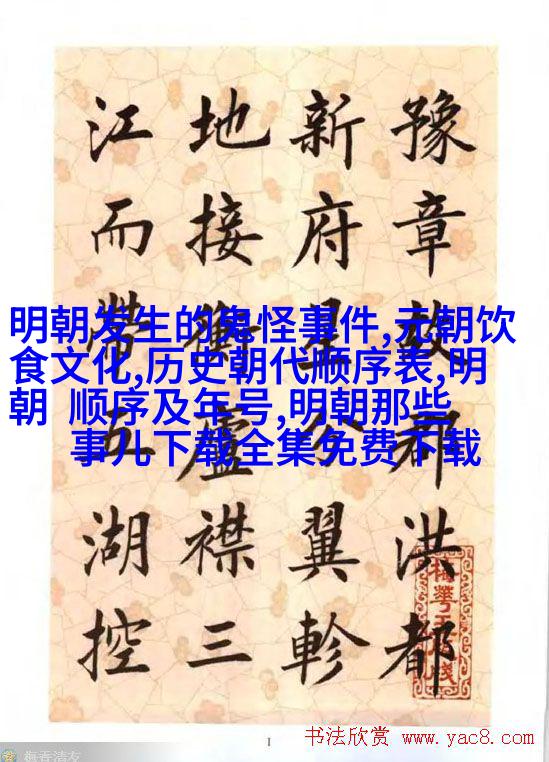 明朝发生的鬼怪事件,元朝饮
食文化,历史朝代顺序表,明
朝 顺序及年号,明朝那些
事儿下载全集免费下载
豫章故郡洪都
新府星分翼軫
地接衡廬襟三
江而帶五湖控
1
书法欣赏 www.yac8.com
梅香清友